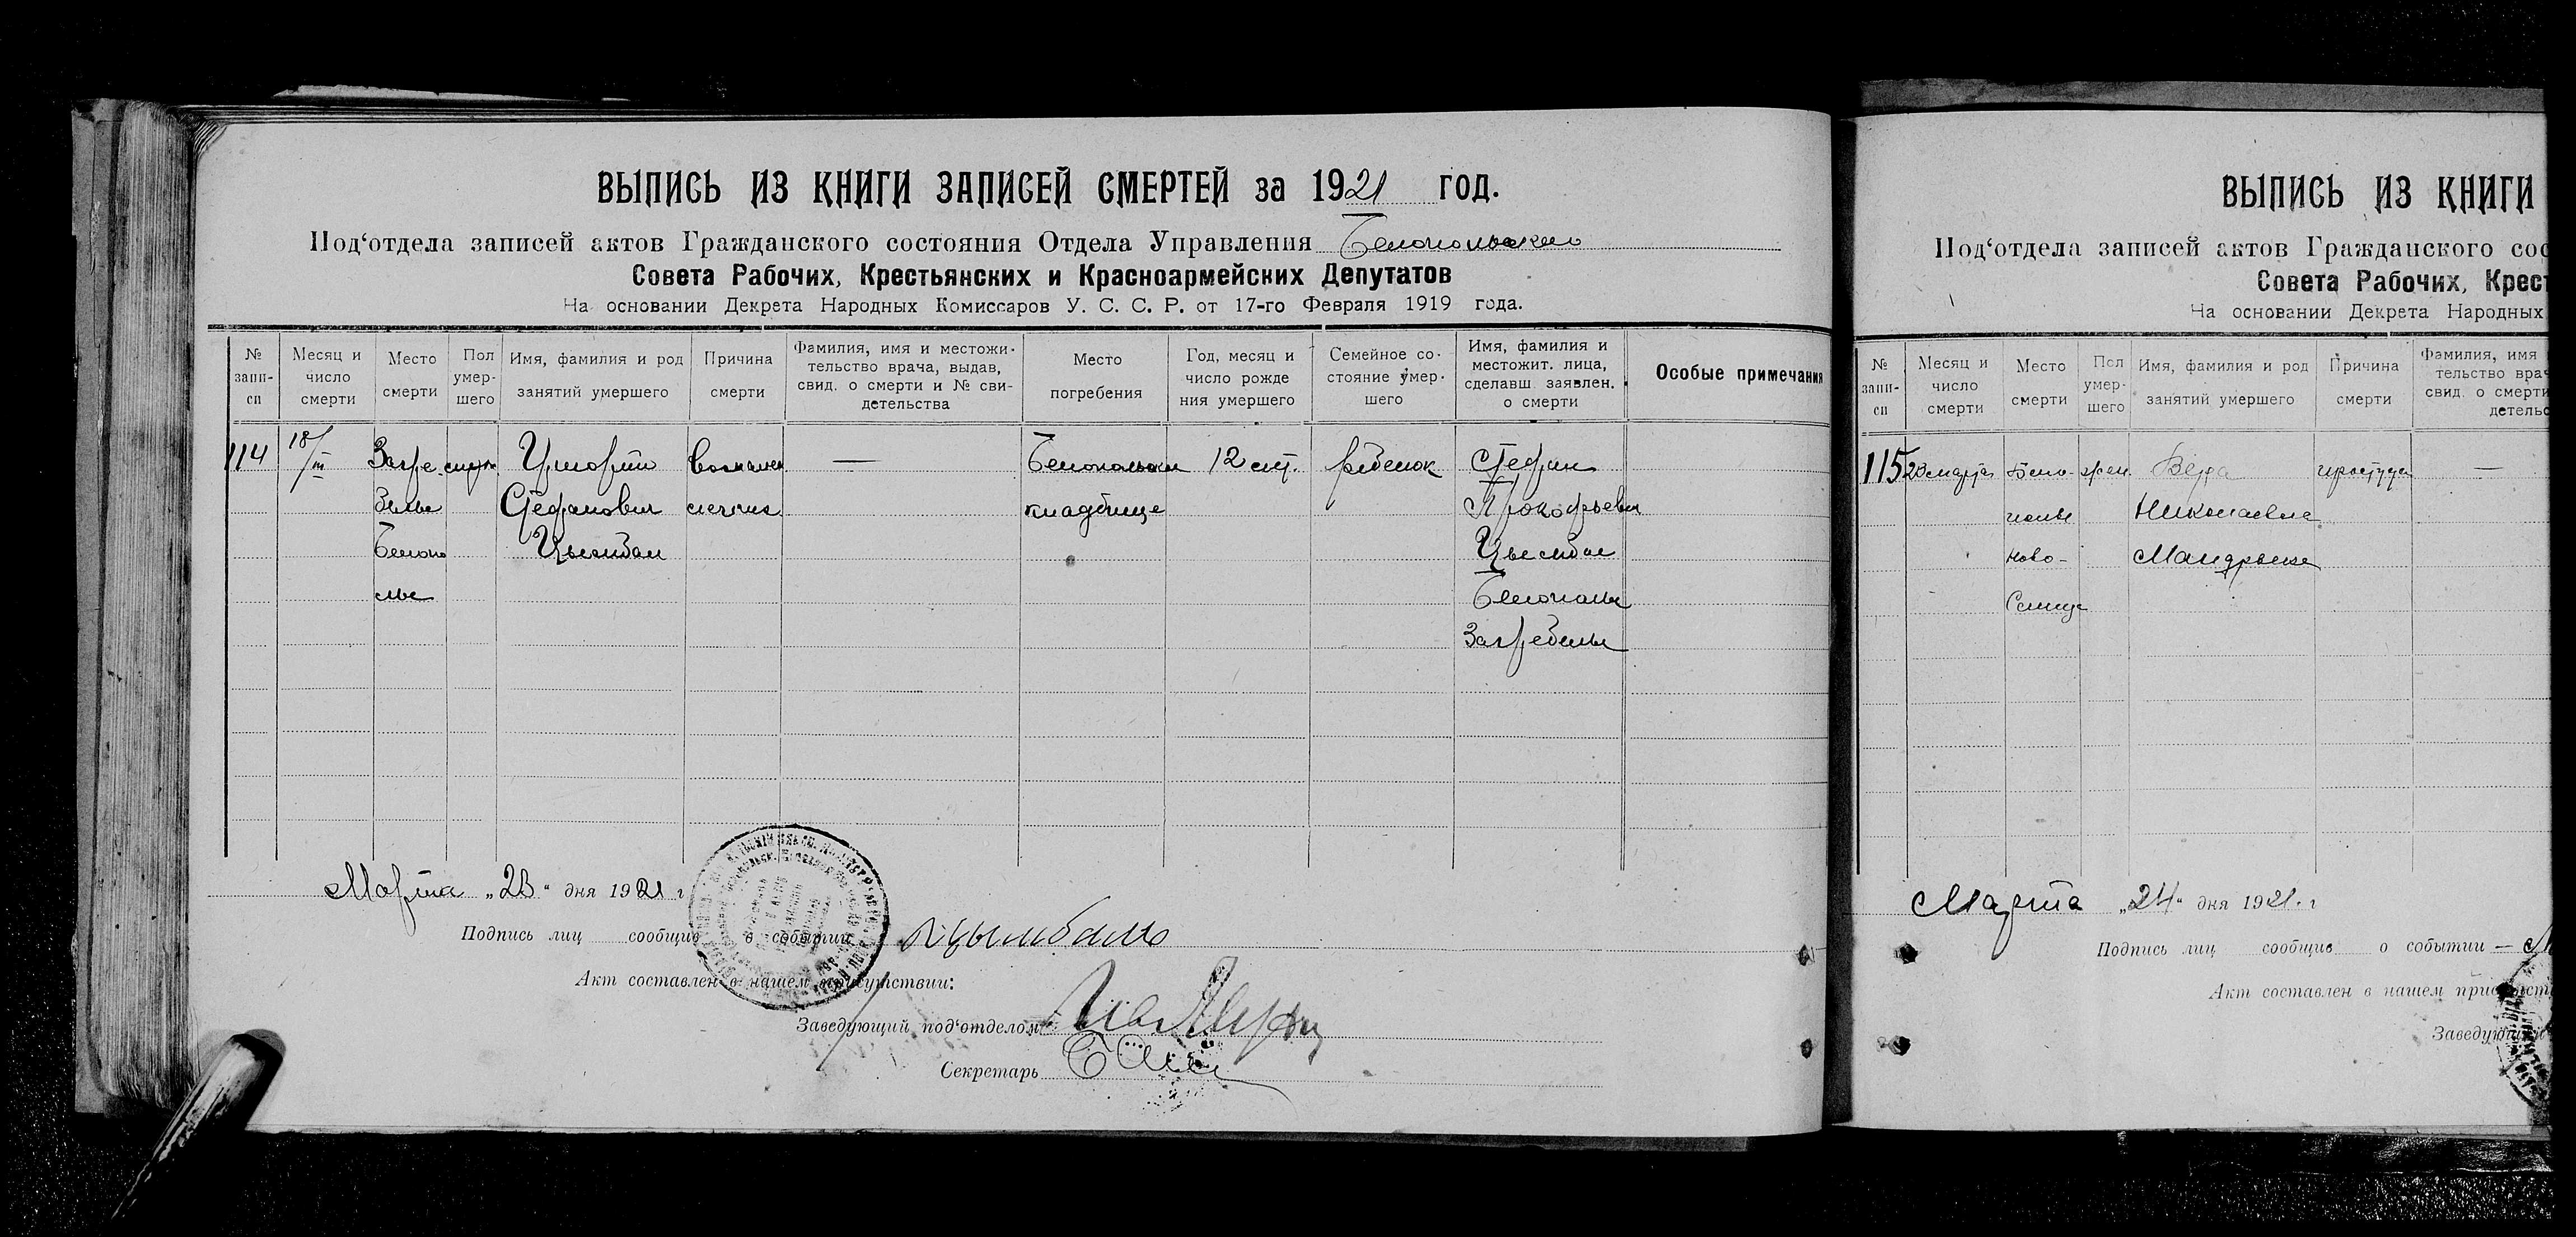 ВЫПИСЬ ИЗ КНИГИ ЗАПИСЕЙ СМЕРТЕЙ за 1921 год.
Под‘отдела записей актов Гражданского состояния Отдела Управления Белопольского
Совета Рабочих, Крестьянских и Красноармейских Депутатов
На основании Декрета Народных Комиссаров У. С. С. Р. от 17-го Февраля 1919 года.
№ запи- си
Месяц и число смерти
Место смерти
Пол умер- шего
Имя, фамилия и род занятий умершего
Причина смерти
Фамилия, имя и местожи- тельство врача, выдав, свид. о смерти и № сви- детельства
Место погребения
Год, месяц и число рожде ния умершего
Семейное со- стояние умер- шего
Имя, фамилия и местожит. лица, сделавш. заявлен. о смерти
Особые примечания
114 18/III Загре- муж. Воспален — Белопольск 12 лет. ребенок Стефан
белье Стефанович легких кладбище Прокофьевич
Белопо Цымбал Цымбал
лье Белополье
Загребелье
Марта „23“ дня 1921 г
Подпись лиц сообщив о событии Цымбалъ
Акт составлен в нашем присутствии:
Заведующий под‘отделом
Секретарь
ВЫПИСЬ ИЗ КНИГИ
Под‘отдела записей актов Гражданского сос
Совета Рабочих, Крест
На основании Декрета Народных
№ запи- си
Месяц и число смерти
Место смерти
Пол умер- шего
Имя, фамилия и род занятий умершего
Причина смерти
Фамилия, имя тельство вра свид. о смерти детельс
115 23 марта Бело- жен. Вера простуда —
полье Николаевна
Ново-
Марта „24“ дня 1921. г
Подпись лиц сообщив о событии —
Акт составлен в нашем
Заведующий